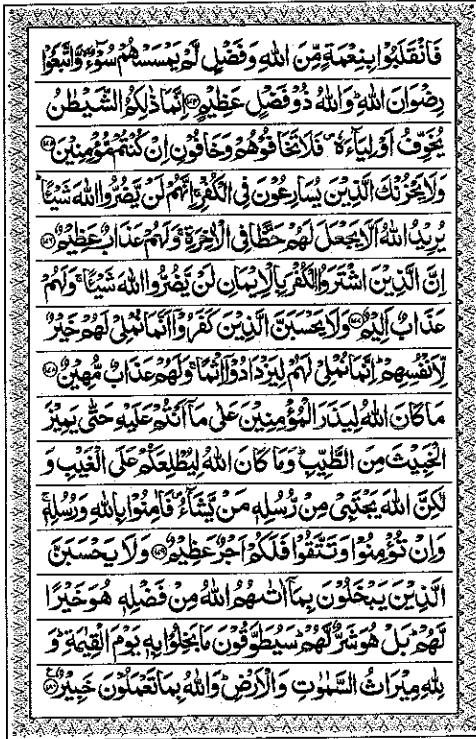 فَانْقَلَبُوْا بِنِعْمَةٍ مِّنَ اللّٰهِ وَفَضْلٍ لَّمْ يَمْسَسْهُمْ سُوْٓءٌ ۙ وَّاتَّبَعُوْا
رِضْوَانَ اللّٰهِ ؕ وَاللّٰهُ ذُوْ فَضْلٍ عَظِيْمٍ ﴿۱۷۴﴾ اِنَّمَا ذٰلِكُمُ الشَّيْطٰنُ
يُخَوِّفُ اَوْلِيَآءَهٗ ۪ فَلَا تَخَافُوْهُمْ وَخَافُوْنِ اِنْ كُنْتُمْ مُّؤْمِنِيْنَ ﴿۱۷۵﴾
وَلَا يَحْزُنْكَ الَّذِيْنَ يُسَارِعُوْنَ فِى الْكُفْرِ ۚ اِنَّهُمْ لَنْ يَّضُرُّوا اللّٰهَ شَيْئًا ؕ
يُرِيْدُ اللّٰهُ اَلَّا يَجْعَلَ لَهُمْ حَظًّا فِى الْاٰخِرَةِ ۚ وَلَهُمْ عَذَابٌ عَظِيْمٌ ﴿۱۷۶﴾
اِنَّ الَّذِيْنَ اشْتَرَوُا الْكُفْرَ بِالْاِيْمَانِ لَنْ يَّضُرُّوا اللّٰهَ شَيْئًا ۚ وَلَهُمْ
عَذَابٌ اَلِيْمٌ ﴿۱۷۷﴾ وَلَا يَحْسَبَنَّ الَّذِيْنَ كَفَرُوْۤا اَنَّمَا نُمْلِىْ لَهُمْ خَيْرٌ
لِّاَنْفُسِهِمْ ؕ اِنَّمَا نُمْلِىْ لَهُمْ لِيَزْدَادُوْۤا اِثْمًا ۚ وَلَهُمْ عَذَابٌ مُّهِيْنٌ ﴿۱۷۸﴾
مَا كَانَ اللّٰهُ لِيَذَرَ الْمُؤْمِنِيْنَ عَلٰى مَاۤ اَنْتُمْ عَلَيْهِ حَتّٰى يَمِيْزَ
الْخَبِيْثَ مِنَ الطَّيِّبِ ؕ وَمَا كَانَ اللّٰهُ لِيُطْلِعَكُمْ عَلَى الْغَيْبِ وَ
لٰكِنَّ اللّٰهَ يَجْتَبِىْ مِنْ رُّسُلِهٖ مَنْ يَّشَآءُ ۪ فَاٰمِنُوْا بِاللّٰهِ وَرُسُلِهٖ ۚ
وَاِنْ تُؤْمِنُوْا وَتَتَّقُوْا فَلَكُمْ اَجْرٌ عَظِيْمٌ ﴿۱۷۹﴾ وَلَا يَحْسَبَنَّ
الَّذِيْنَ يَبْخَلُوْنَ بِمَاۤ اٰتٰىهُمُ اللّٰهُ مِنْ فَضْلِهٖ هُوَ خَيْرًا
لَّهُمْ ؕ بَلْ هُوَ شَرٌّ لَّهُمْ ؕ سَيُطَوَّقُوْنَ مَا بَخِلُوْا بِهٖ يَوْمَ الْقِيٰمَةِ ؕ وَ
لِلّٰهِ مِيْرَاثُ السَّمٰوٰتِ وَالْاَرْضِ ؕ وَاللّٰهُ بِمَا تَعْمَلُوْنَ خَبِيْرٌ ﴿۱۸۰﴾ ع